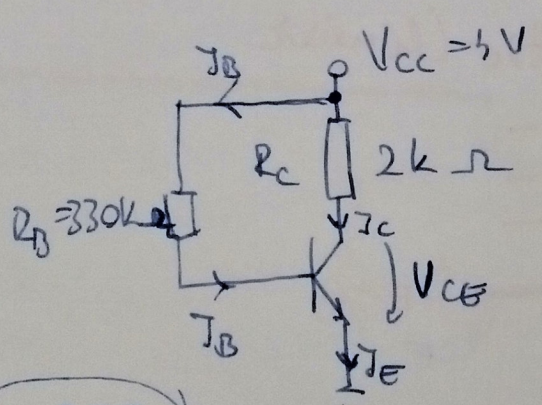 I_B
V_CC = 5V
R_C 2kΩ
R_B = 330kΩ
I_C
V_CE
I_B
I_E